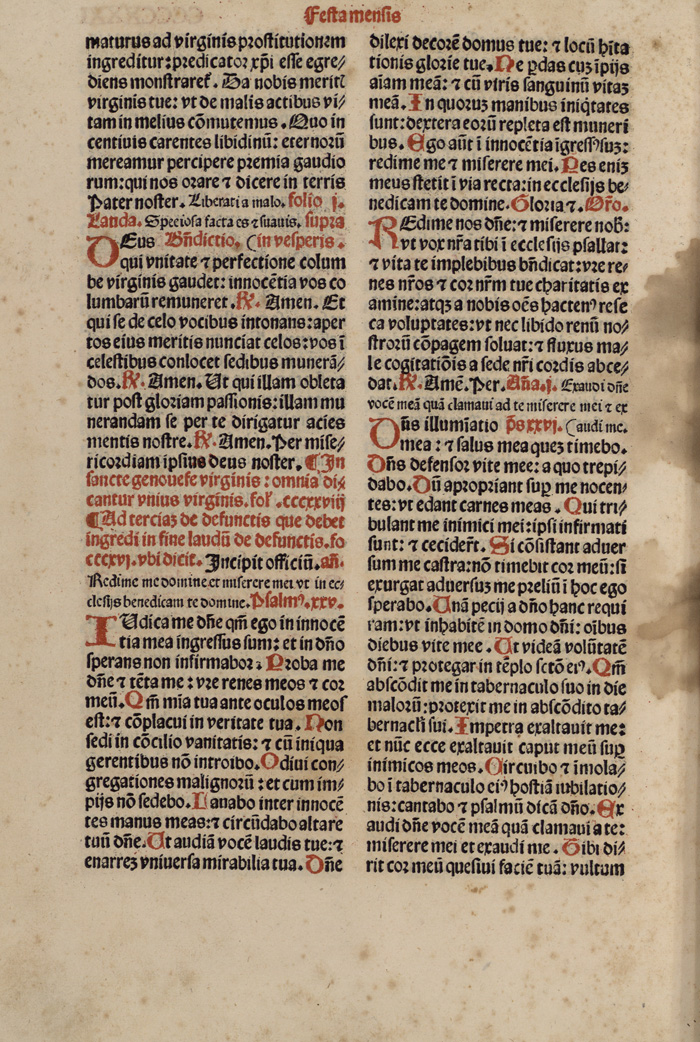 Festa mensis
maturus ad virginis prostitutionem
ingreditur: predicator xp̄i esse egre/
diens monstraret᷒. Da nobis merit᷒
virginis tue: vt de malis actibus vi/
tam in melius cōmutemus. Quo in
centivis carentes libidinū: eternorū
mereamur percipere premia gaudio
rum: qui nos orare ⁊ dicere in terris
Pater noster. Liberati a malo. folio j.
Landa. Speciosa facta es ⁊ suauis. supra
DEus Bn̄dictio. (in vesperis.
qui vnitate ⁊ perfectione colum
be virginis gaudet: innocētia vos co
lumbarū remuneret. ℟. Amen. Et
qui se de celo vocibus intonans: aper
tos eius meritis nunciat celos: vos ī
celestibus conlocet sedibus munerā/
dos. ℟. Amen. Ut qui illam obleta
tur post gloriam passionis: illam mu
nerandam se per te dirigatur acies
mentis nostre. ℟. Amen. Per mise/
ricordiam ipsius deus noster. ¶ In
sancte genouefe virginis: omnia di/
cantur vnius virginis. fol᷒. cccxxviij
¶ Ad terciaz de defunctis que debet
ingredi in fine laudū de defunctis. fo
cccxvj. vbi dicit. Incipit officiū. an̄.
Redime me domine et miserere mei vt in ec/
clesijs benedicam te domine. Psalmꝰ. xxv.
IUdica me dn̄e qm̄ ego in innocē
tia mea ingressus sum: et in dn̄o
sperans non infirmabor: Proba me
dn̄e ⁊ tēta me: vre renes meos ⁊ cor
meū. Qm̄ mīa tua ante oculos meos
est: ⁊ cōplacui in veritate tua. Non
sedi in cōcilio vanitatis: ⁊ cū iniqua
gerentibus nō introibo. Odivi con/
gregationes malignorū: et cum im/
pijs nō sedebo. Lauabo inter innocē
tes manus meas: ⁊ circūdabo altare
tuū dn̄e. Ut audiā vocē laudis tue: ⁊
enarrez vniuersa mirabilia tua. Dn̄e
dilexi decorē domus tue: ⁊ locū hīta
tionis glorie tue. Ne ꝑdas cuz īpijs
aīam meā: ⁊ cū viris sanguinū vitaz
meā. In quoruz manibus iniq̇tates
sunt: dextera eorū repleta est muneri
bus. Ego aūt ī innocētia īgressꝰ suz:
redime me ⁊ miserere mei. Pes eniz
meus stetit ī via recta: in ecclesijs be/
nedicam te domine. Gloria ⁊. Or̄o.
REdime nos dn̄e: ⁊ miserere nob᷒:
vt vox nr̄a tibi ī ecclesijs psallat:
⁊ vita te implebibus bn̄dicat: vre re/
nes nr̄os ⁊ cor nr̄m tue charitatis ex
amine: atqꝫ a nobis oēs hactenꝰ rese
ca voluptates: vt nec libido renū no/
strorū cōpagem soluat: ⁊ fluxus ma/
le cogitatiōis a sede nr̄i cordis abce/
dat. ℟. Amē. Per. Añā. j. Exaudi dn̄e
vocē meā quā clamaui ad te miserere mei ⁊ ex
DN̄s illumīatio p̄s xxvj. (audi me.
mea: ⁊ salus mea quez timebo.
Dn̄s defensor vite mee: a quo trepi/
dabo. Dū apropriant suꝑ me nocen/
tes: vt edant carnes meas. Qui tri/
bulant me inimici mei: ipsi infirmati
sunt: ⁊ ceciderūt. Si cōsistant aduer
sum me castra: nō timebit cor meū: si
exurgat aduersuz me preliū ī hoc ego
sperabo. Unā pecij a dn̄o hanc requi
ram: vt inhabitē in domo dn̄i: oībus
diebus vite mee. Ut videā volūtatē
dn̄i: ⁊ protegar in tēplo sctō eiꝰ. Qm̄
abscōdit me in tabernaculo suo in die
malorū: protexit me in abscōdito ta/
bernacli sui. Impetra exaltauit me:
et nūc ecce exaltauit caput meū suꝑ
inimicos meos. Circuibo ⁊ īmola/
bo ī tabernaculo eiꝰ hostiā iubilatio/
nis: cantabo ⁊ psalmū dicā dn̄o. Ex
audi dn̄e vocē meā quā clamaui a te:
miserere mei et exaudi me. Tibi di/
xit cor meū quesiui faciē tuā: vultum